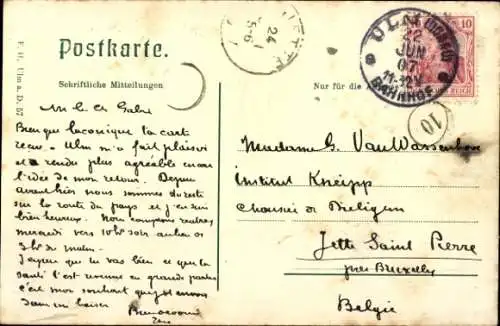 Postkarte.
Schriftliche Mitteilungen
Nur für die
F. H., Ulm a. D. 57
ULM
22
JUN
07
11-12V
BAHNHOF
10
24
5-6
10
Bien que laconique ta carte
Ulm m'a fait plaisir
et rendu plus agréable encore
l'idée de mon retour. Depuis
avant hier nous sommes du reste
sur la route du pays et j'en suis
bien heureux. Nous comptons rentrer
mercredi vers 10h soir
3h du matin.
J'espère que tu vas bien et que ta
santé t'est revenue en grande partie
c'est mon souhait
un baiser
Madame G. Van Wassenhove
Institut Kneipp
Chaussée de Dieligem
Jette Saint Pierre
près Bruxelles
Belgie